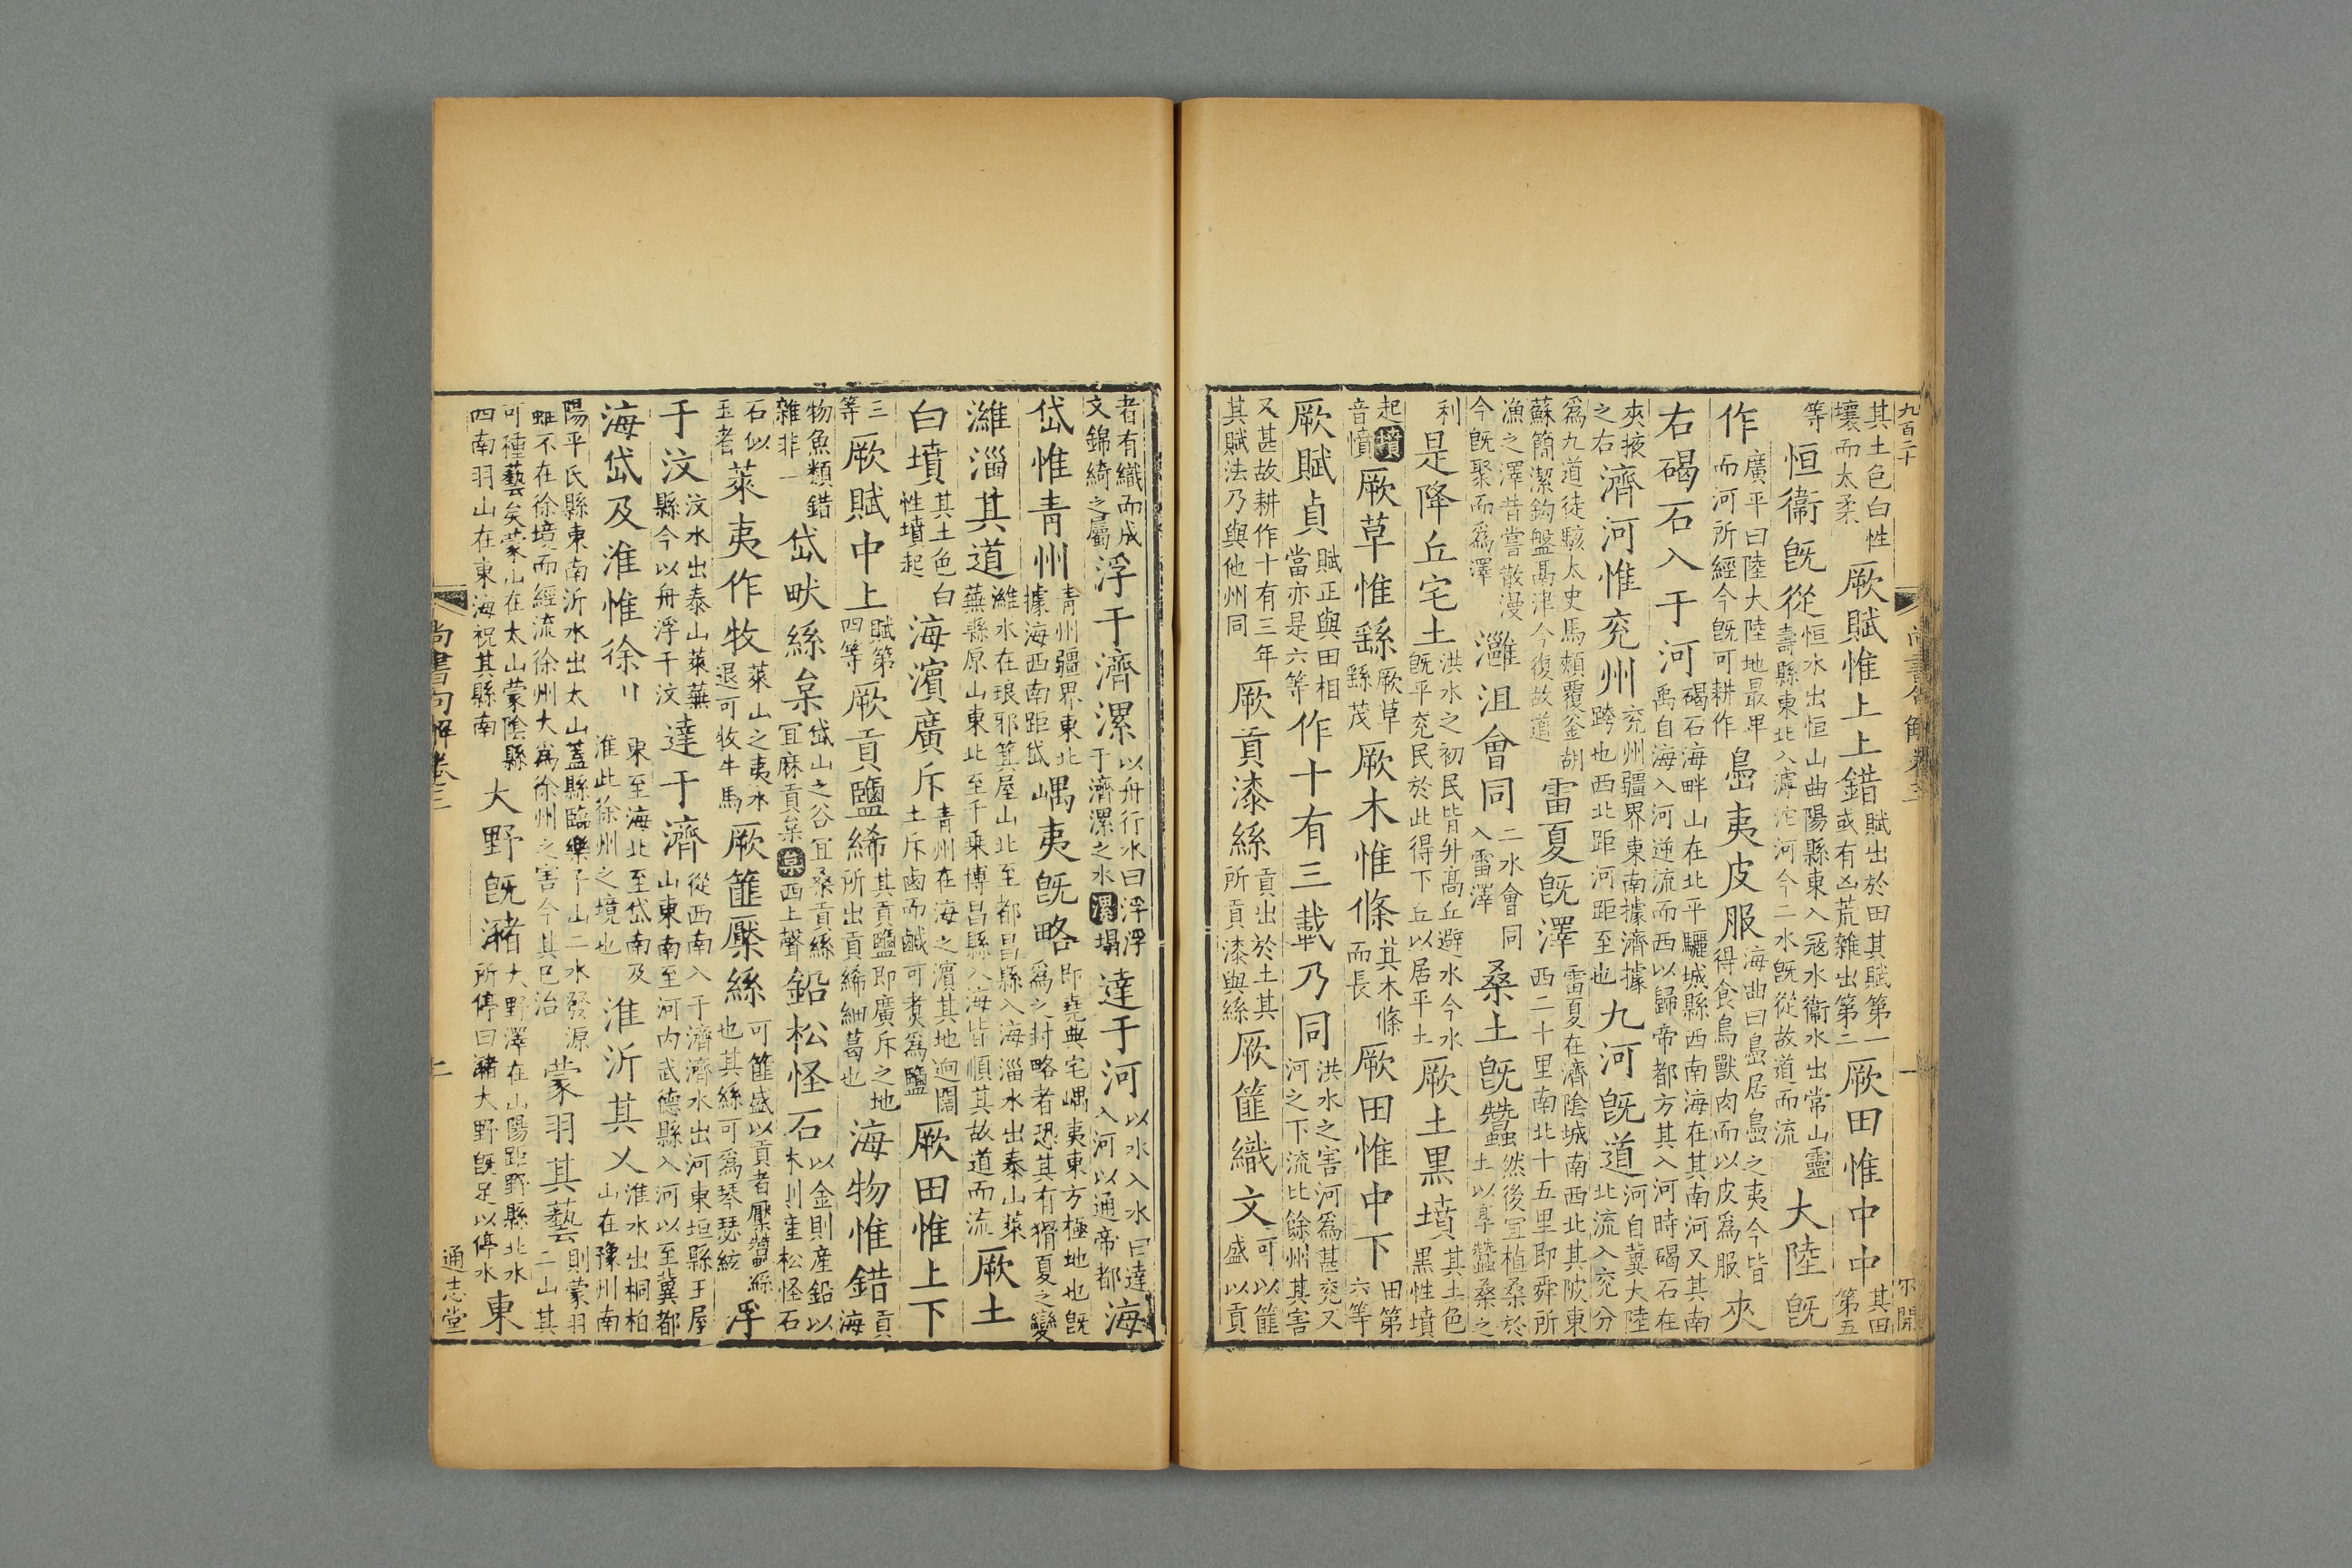 九百二十 尚書句解卷三 一 不開
其土色白性壤而太柔厥賦惟上上錯賦出於田其賦第一或有凶荒雜出第二厥田惟中中其田第五
等恒衞旣從恒水出恒山曲陽縣東入滱水衞水出常山靈壽縣東北入滹沱河今二水旣從故道而流大陸旣
作廣平曰陸大陸地最卑而河所經今旣可耕作島夷皮服海曲曰島居島之夷今皆得食鳥獸肉而以皮爲服夾
右碣石入于河碣石海畔山在北平驪城縣西南海在其南河又其南禹自海入河逆流而西以歸帝都方其入河時碣石在
夾掖之右濟河惟兖州兖州疆界東南據濟據跨也西北距河距至也九河旣道河自冀大陸北流入兖分
爲九道徒駭太史馬頰覆釜胡蘇簡潔鉤盤鬲津今復故道雷夏旣澤雷夏在濟陰城南西北其陂東西二十里南北十五里即舜所
漁之澤昔嘗散漫今旣聚而爲澤灉沮會同二水會同入雷澤桑土旣蠶然後宜植桑於土以享蠶桑之
利是降丘宅土洪水之初民皆升高丘避水今水旣平兖民於此得下丘以居平土厥土黑墳其土色黑性墳
起墳音憤厥草惟繇厥草繇茂厥木惟條其木條而長厥田惟中下田第六等
厥賦貞賦正與田相當亦是六等作十有三載乃同洪水之害河爲甚兖又河之下流比餘州其害
又甚故耕作十有三年其賦法乃與他州同厥貢漆絲貢出於土其所貢漆與絲厥篚織文可以篚盛以貢
者有織而成文錦綺之屬浮于濟漯以舟行水曰浮浮于濟漯之水漯塌達于河以水入水曰達入河以通帝都海
岱惟靑州靑州疆界東北據海西南距岱嵎夷旣略即堯典宅嵎夷東方極地也旣爲之封略者恐其有猾夏之變
濰淄其道濰水在琅邪箕屋山北至都昌縣入海淄水出泰山萊蕪縣原山東北至千乗博昌縣入海皆順其故道而流厥土
白墳其土色白性墳起海濱廣斥靑州在海之濱其地迥闊土斥鹵而鹹可煑爲鹽厥田惟上下
三等厥賦中上賦第四等厥貢鹽絺其貢鹽即廣斥之地所出貢絺細葛也海物惟錯貢海
物魚類錯雜非一岱畎絲枲岱山之谷宜桑貢絲宜麻貢枲枲西上聲鉛松怪石以金則産鉛以木則産松怪石
石似玉者萊夷作牧萊山之夷水退可牧牛馬厥篚檿絲可篚盛以貢者檿蠶絲也其絲可爲琴瑟絃浮
于汶汶水出泰山萊蕪縣今以舟浮于汶達于濟從西南入于濟濟水出河東垣縣王屋山東南至河内武德縣入河以至冀都
海岱及淮惟徐東至海北至岱南及淮此徐州之境也淮沂其乂淮水出桐柏山在豫州南
陽平氏縣東南沂水出太山蓋縣臨樂子山二水發源雖不在徐境而經流徐州大爲徐州之害今其已治蒙羽其藝則蒙羽二山其
可種藝矣蒙山在太山蒙陰縣四南羽山在東海祝其縣南大野旣瀦大野澤在山陽距野縣北水所停曰瀦大野旣足以停水東
尚書句解卷三 通志堂